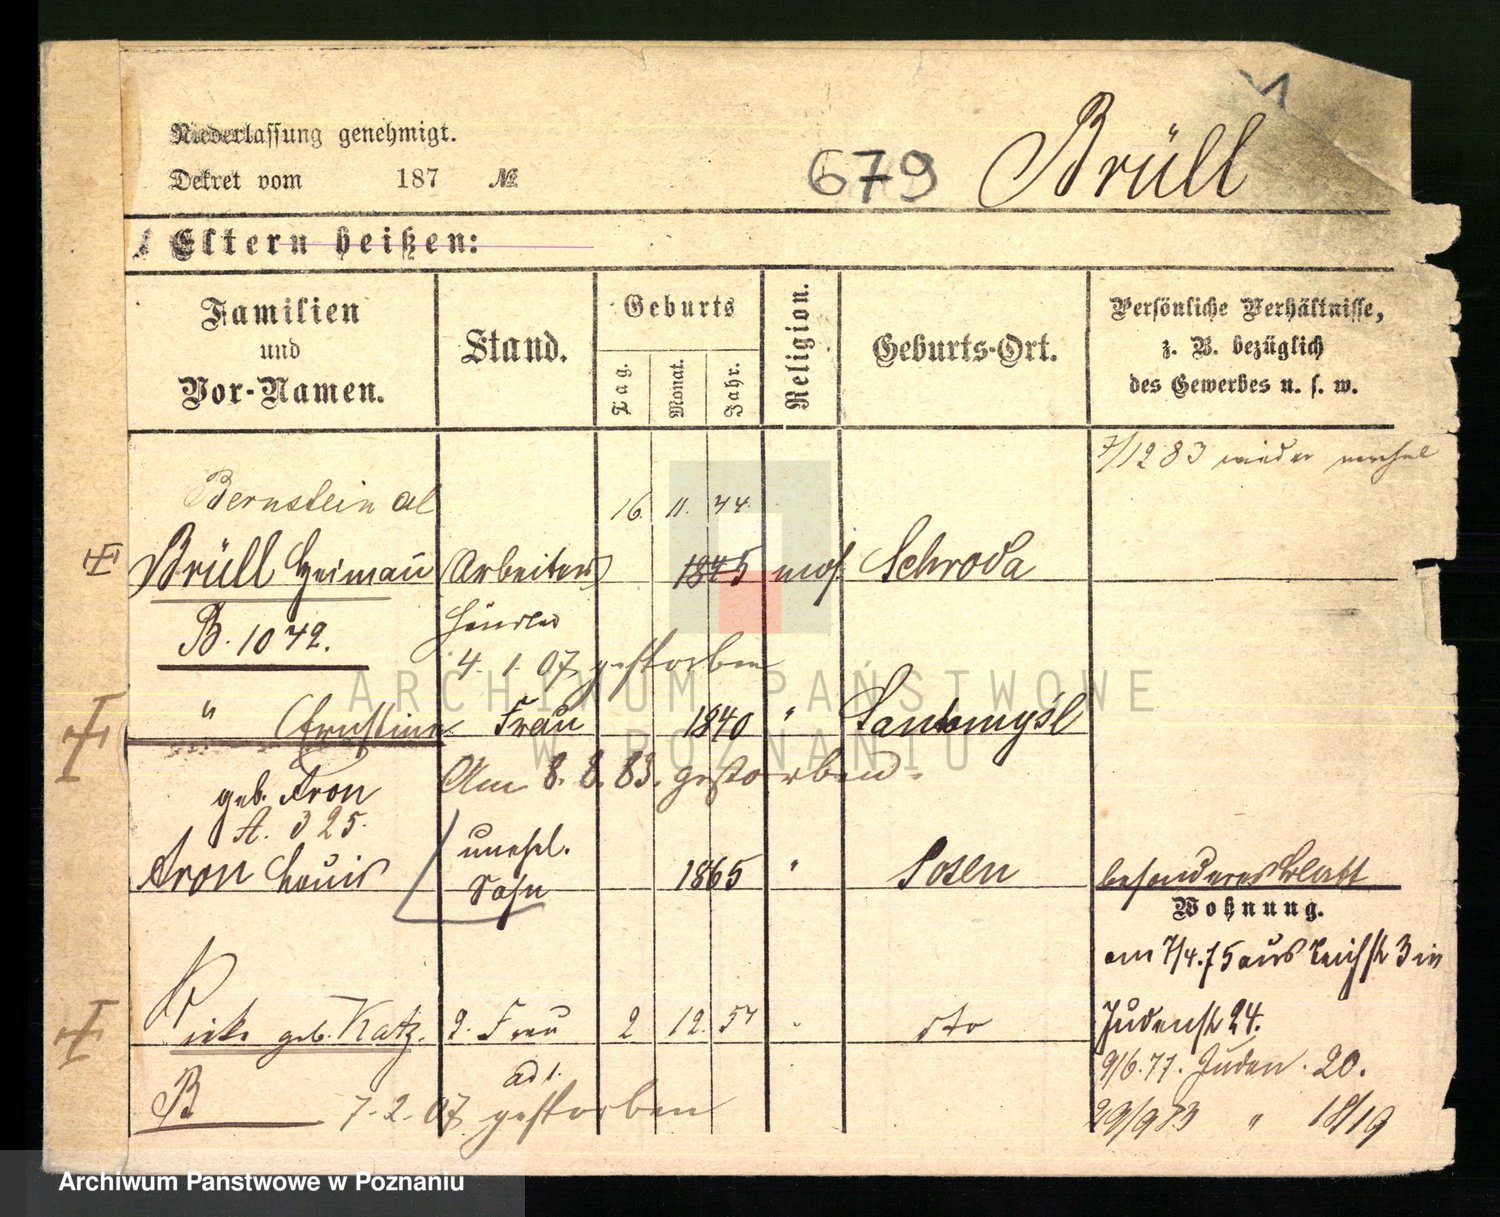 Niederlassung genehmigt.
Dekret vom 187 №
679 Brüll
Eltern heißen:
Familien und Vor-Namen.
Stand.
Geburts
Tag. Monat. Jahr.
Religion.
Geburts-Ort.
Persönliche Verhältnisse, z. B. bezüglich des Gewerbes u. s. w.
7/12 83 wieder
Bernstein al 16. 11. 44.
Brüll Heimann Arbeiter 1845 mos. Schroda
B. 1042. Händler
4. 1. 07 gestorben
" Ernstine Frau 1840 " Santomysl
Am 8. 8. 83. gestorben.
geb. Aron
A. 325.
Aron Louis unehl. Sohn 1865 " Posen besonderes Blatt
Wohnung.
am 7/4. 75 aus 3 in
Judenstr 24.
Rieke geb. Katz. 2. Frau 2 12. 57 " dto
9/6. 77. Juden. 20.
ad 1.
B 7. 2. 07 gestorben
29/9 83 " 18/19
ARCHIWUM PAŃSTWOWE
W POZNANIU
Archiwum Państwowe w Poznaniu